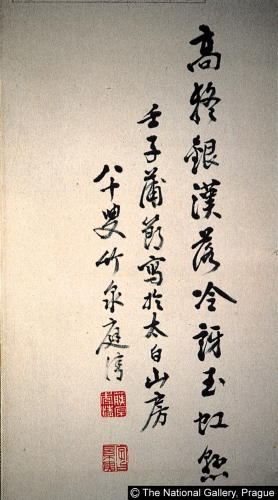 高疑銀漢落冷訝玉虹懸
壬子蒲節寫於太白山房
八十叟竹泉庭清
© The National Gallery, Prague